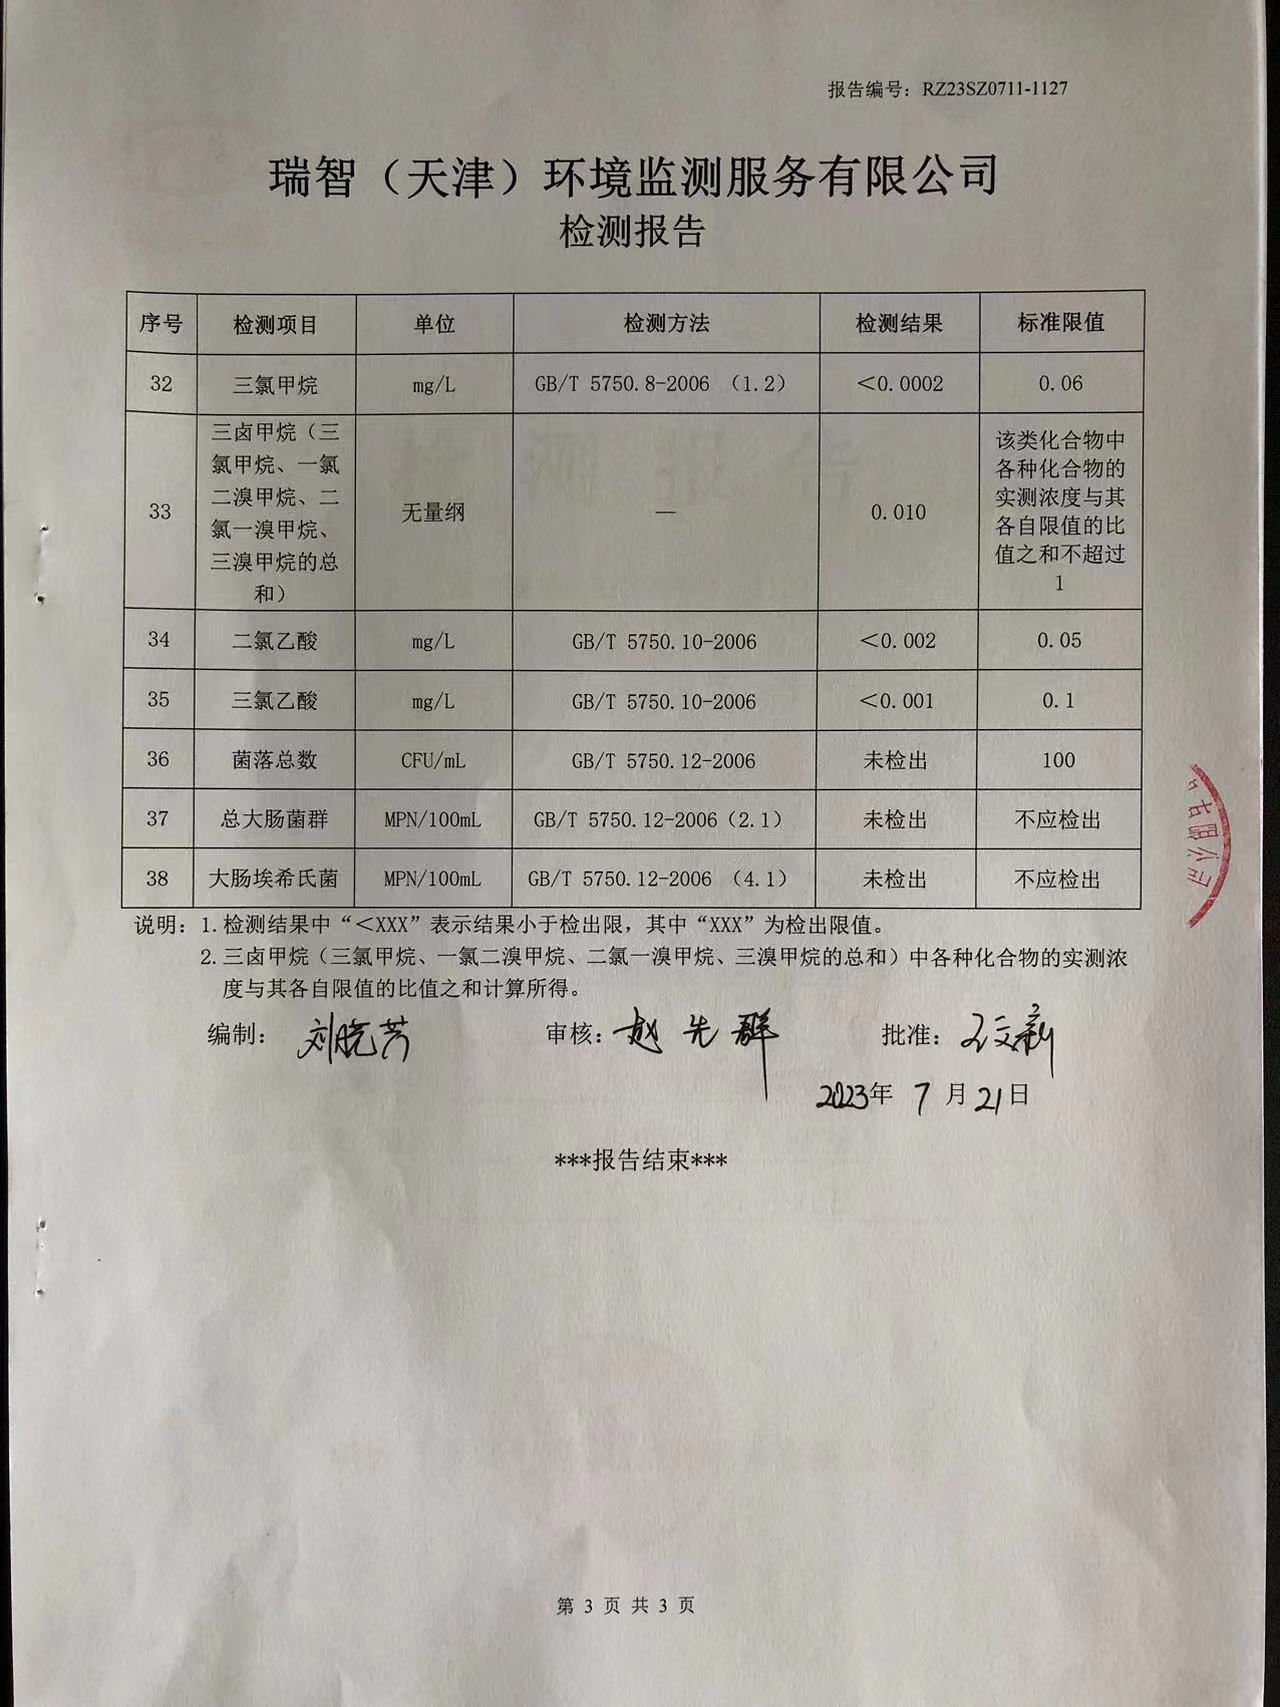 报告编号：RZ23SZ0711-1127
瑞智（天津）环境监测服务有限公司
检测报告
序号 检测项目 单位 检测方法 检测结果 标准限值
32 三氯甲烷 mg/L GB/T 5750.8-2006 （1.2） ＜0.0002 0.06
33
三卤甲烷（三
氯甲烷、一氯
二溴甲烷、二
氯一溴甲烷、
三溴甲烷的总
和）
无量纲
—
0.010
该类化合物中
各种化合物的
实测浓度与其
各自限值的比
值之和不超过
1
34 二氯乙酸 mg/L GB/T 5750.10-2006 ＜0.002 0.05
35 三氯乙酸 mg/L GB/T 5750.10-2006 ＜0.001 0.1
36 菌落总数 CFU/mL GB/T 5750.12-2006 未检出 100
37 总大肠菌群 MPN/100mL GB/T 5750.12-2006（2.1） 未检出 不应检出
38 大肠埃希氏菌 MPN/100mL GB/T 5750.12-2006 （4.1） 未检出 不应检出
说明：1.检测结果中“＜XXX”表示结果小于检出限，其中“XXX”为检出限值。
2.三卤甲烷（三氯甲烷、一氯二溴甲烷、二氯一溴甲烷、三溴甲烷的总和）中各种化合物的实测浓
度与其各自限值的比值之和计算所得。
编制：刘晓芳 审核：赵先群 批准：
2023年 7 月 21日
***报告结束***
第 3 页 共 3 页